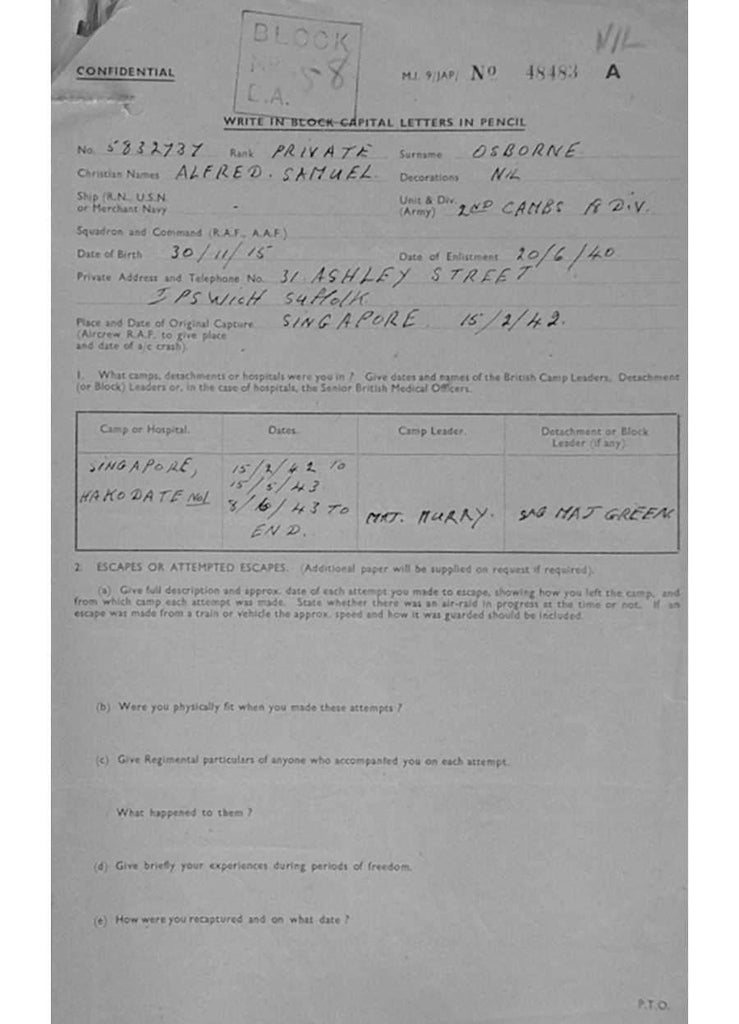 NIL
BLOCK
58
CONFIDENTIAL
M.I. 9/JAP/ No 48483 A
WRITE IN BLOCK CAPITAL LETTERS IN PENCIL
No. 5832737 Rank PRIVATE Surname OSBORNE
Christian Names ALFRED. SAMUEL. Decorations NIL
Ship (R.N., U.S.N. or Merchant Navy - Unit & Div. (Army) 2ND CAMBS DIV.
Squadron and Command (R.A.F., A.A.F.)
Date of Birth 30/11/15 Date of Enlistment 20/6/40
Private Address and Telephone No. 31. ASHLEY STREET
IPSWICH SuffolK
Place and Date of Original Capture SINGAPORE. 15/2/42.
(Aircrew R.A.F. to give place
and date of a/c crash).
1. What camps, detachments or hospitals were you in ? Give dates and names of the British Camp Leaders, Detachment
(or Block) Leaders or, in the case of hospitals, the Senior British Medical Officers.
Camp or Hospital. Dates. Camp Leader. Detachment or Block
Leader (if any).
SINGAPORE, 15/2/42 TO
15/5/43.
HAKODATE No1 8/6/43 TO
END. MAJ. MURRY. MAJ GREEN
2. ESCAPES OR ATTEMPTED ESCAPES. (Additional paper will be supplied on request if required).
(a) Give full description and approx. date of each attempt you made to escape, showing how you left the camp, and
from which camp each attempt was made. State whether there was an air-raid in progress at the time or not. If an
escape was made from a train or vehicle the approx. speed and how it was guarded should be included.
(b) Were you physically fit when you made these attempts ?
(c) Give Regimental particulars of anyone who accompanied you on each attempt.
What happened to them ?
(d) Give briefly your experiences during periods of freedom.
(e) How were you recaptured and on what date ?
P.T.O.